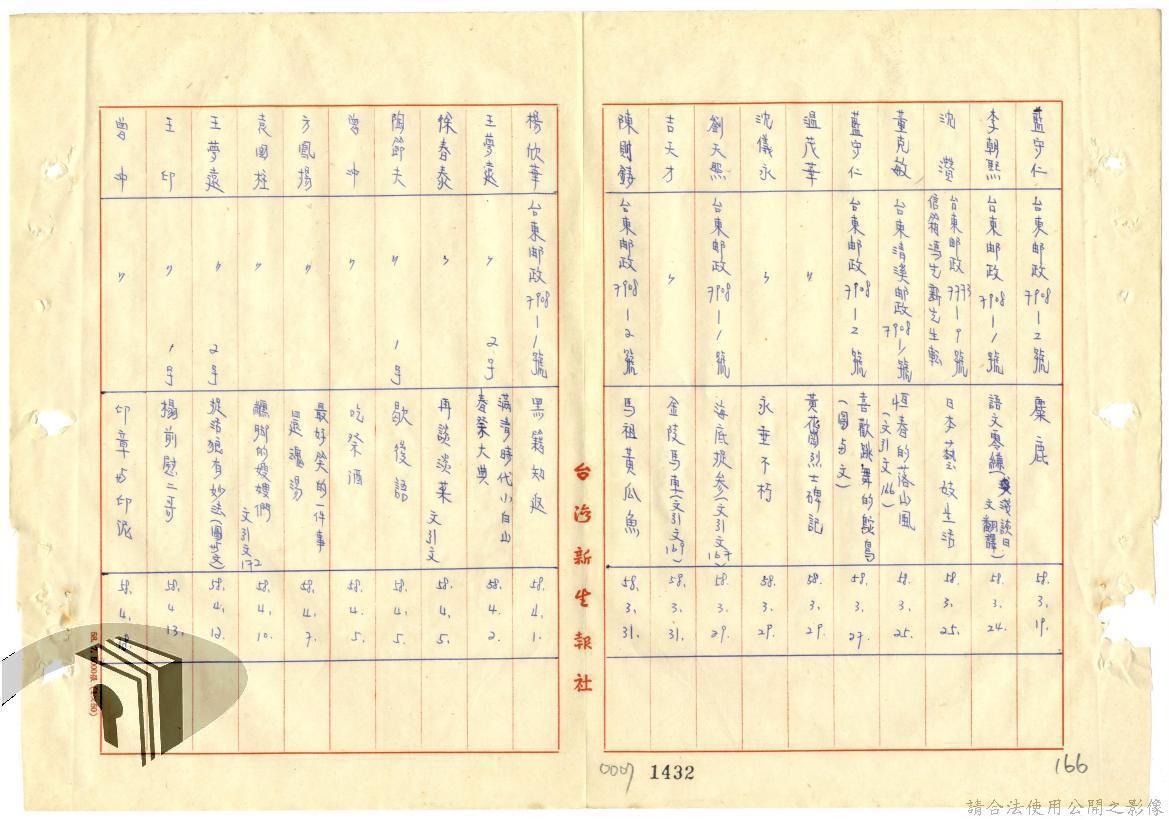 藍守仁 台東郵政7908-2號 麋鹿 58.3.19.
李朝熙 台東郵政7908-1號 語文零練(淺談日文翻譯) 58.3.24.
沈 台東郵政7773-9號信箱馮先生転 日本藝妓生活 58.3.25.
董克敏 台東清溪郵政7908-1號 恆春的落山風(文引文166) 58.3.25.
藍守仁 台東郵政7908-2號 喜歡跳舞的鴕鳥(圖与文) 58.3.27.
溫茂華 〃 黃花崗烈士碑記 58.3.29.
沈儀永 〃 永垂不朽 58.3.29.
劉天熙 台東郵政7908-1號 海底捉參(文引文167) 58.3.29.
吉天才 〃 金陵馬車(文引文169) 58.3.31.
陳財鑄 台東郵政7908-2號 馬祖黃瓜魚 58.3.31.
台灣新生報社
楊欣華 台東郵政7908-1號 黑籍知返 58.4.1.
王夢遠 〃 2号 滿清時代小白山春祭大典 58.4.2.
徐春泰 〃 再談淡菜 文引文 58.4.5.
陶節夫 〃 1号 歇後語 58.4.5.
曾冲 〃 吃祭酒 58.4.5.
方鳳揚 〃 最好笑的一件事 還魂湯 58.4.7.
袁國柱 〃 蹺脚的嫂嫂們 文引文172 58.4.10.
王夢遠 〃 2号 捉 狼有妙法(圖与文) 58.4.12.
王印 〃 1号 榻前慰二哥 58.4.13.
曾冲 〃 印章与印泥 58.4.18.
0007 1432
166
請合法使用公開之影像